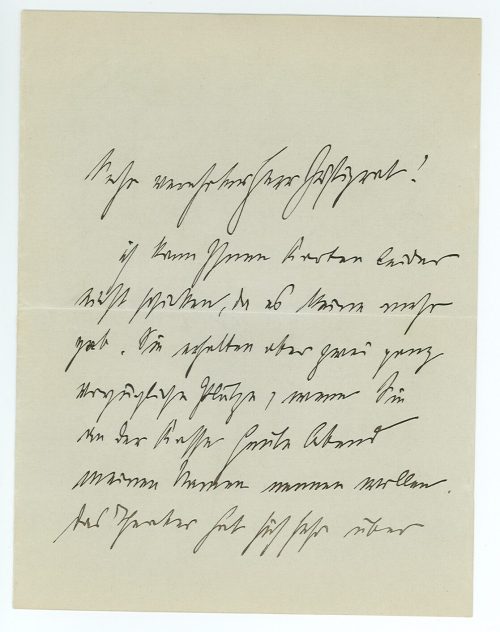 Sehr verehrter Herr Justizrat!
ich kann Ihnen Karten leider
nicht schicken, da es keine mehr
gab. Sie erhalten aber zwei ganz
vorzügliche Plätze, wenn Sie
an der Kasse heute Abend
meinen Namen nennen wollen.
Das Theater hat sich sehr über